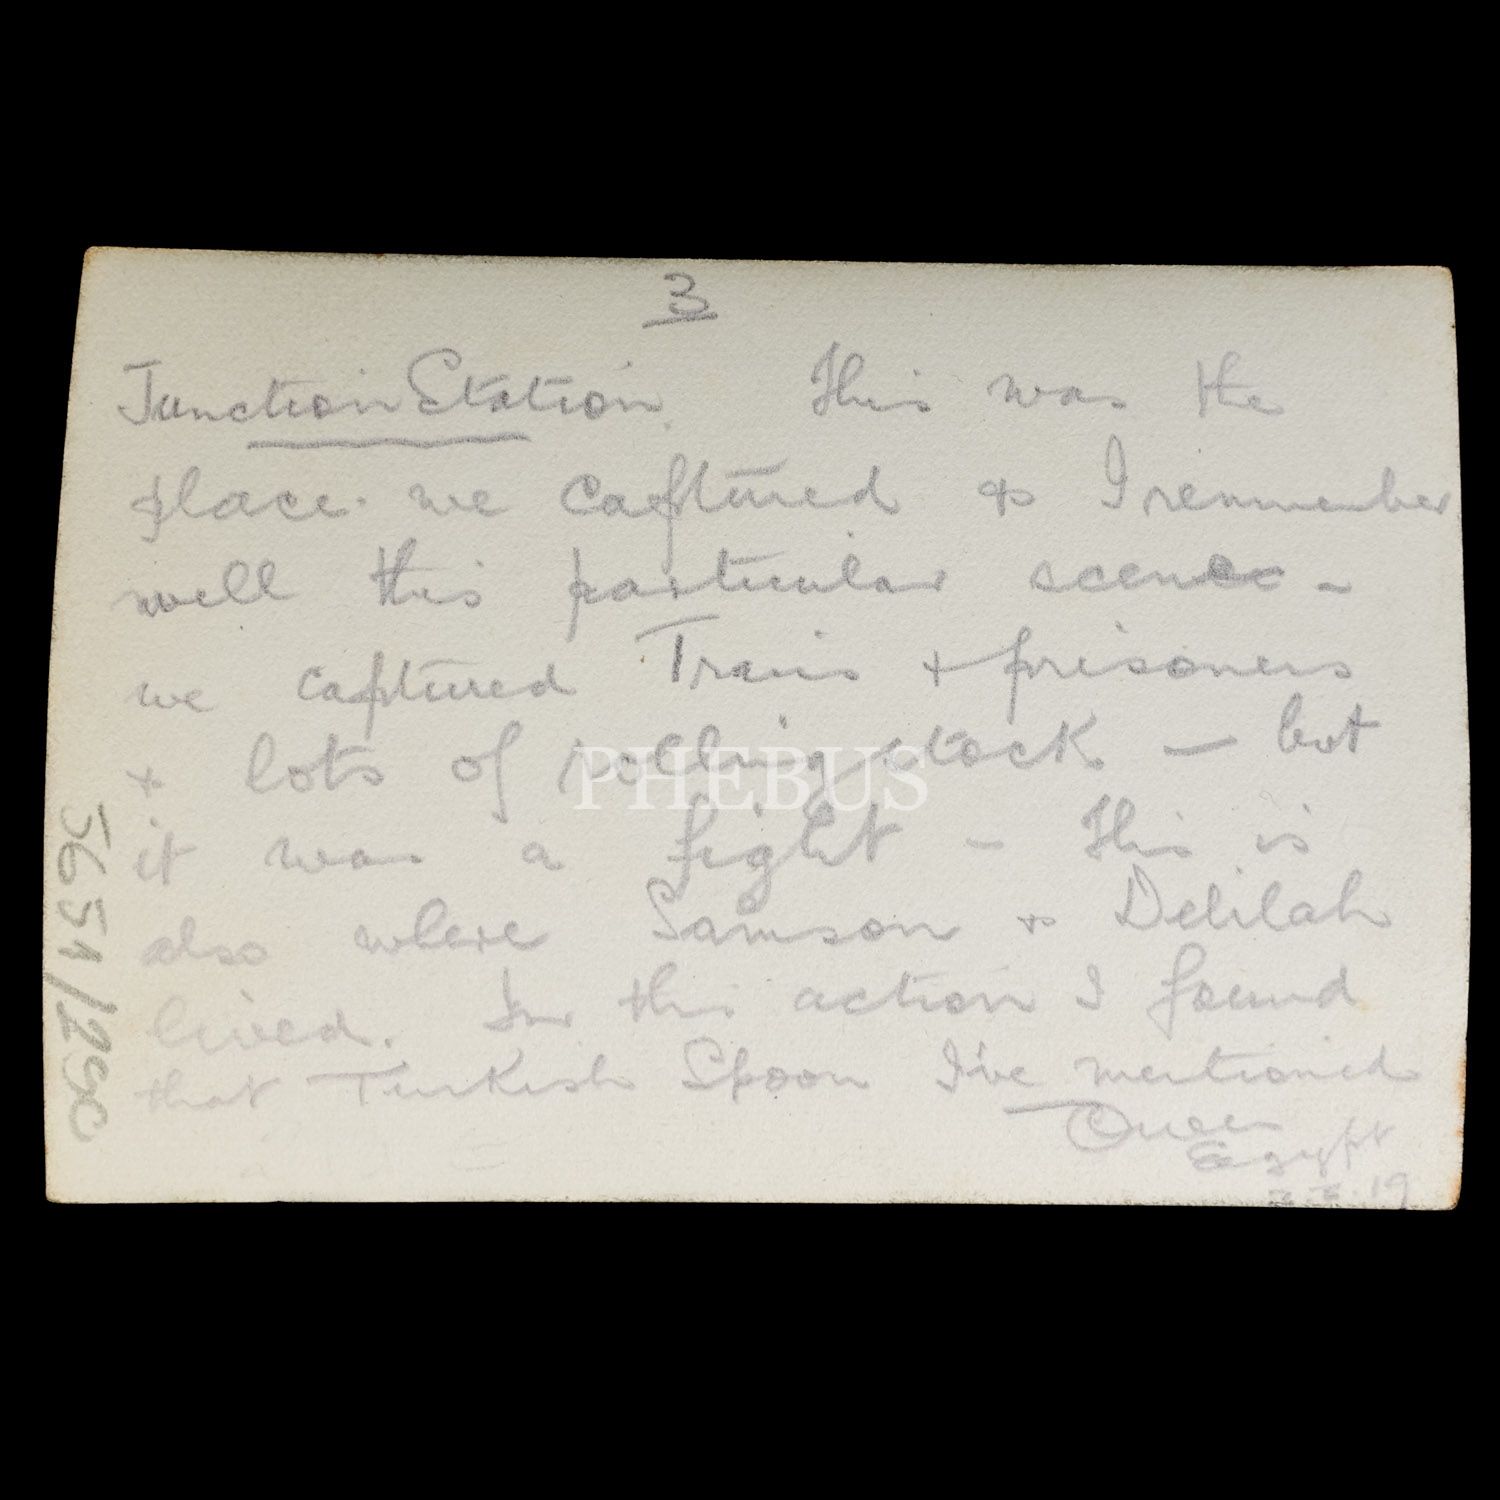 3
Junction Station. This was the
place. we captured & I remember
well this particular scene -
we captured Trains + prisoners
+ lots of rolling stock — but
it was a fight - This is
also where Samson & Delilah
lived. In this action I found
that Turkish Spoon I've mentioned
Egypt
19
5651/290
PHEBUS